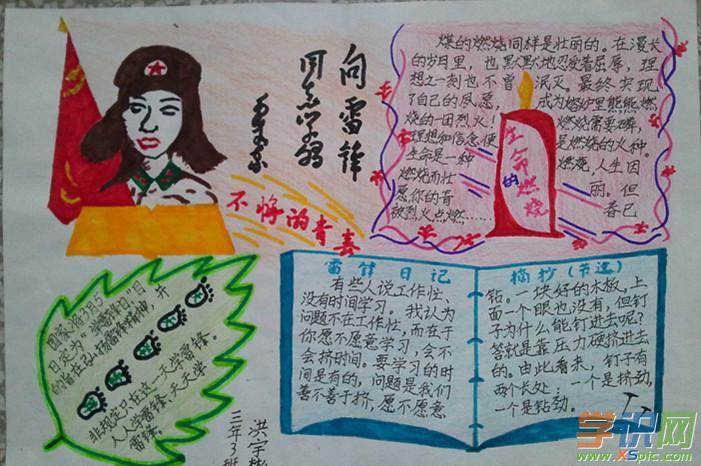 向雷锋
同志学习
毛泽东
不悔的青春
煤的燃烧同样是壮丽的。在漫长
的岁月里，也默默地忍受着屈辱，理
想之一刻也不曾泯灭。最终实现
了自己的夙愿，成为熔炉里熊熊燃
烧的一团烈火！燃烧需要磷，
理想和信念便是燃烧的火种。
生命是一种燃烧，人生因
燃烧而壮丽。但
愿你的青春已
被烈火点燃……
生命的燃烧
国家将3月5
日定为"学雷锋日"目
的旨在弘扬雷锋精神，并
非规定只在这一天学雷锋。
人人学雷锋、天天学
雷锋。
三年3班
洪宇
雷锋日记
有些人说工作忙、
没有时间学习。我认为
问题不在工作忙，而在于
你愿不愿意学习，会不
会挤时间。要学习的时
间是有的，问题是我们
善不善于挤，愿不愿意
摘抄(节选)
钻。一块好的木板，上
面一个眼也没有，但钉
子为什么能钉进去呢？
答就是靠压力硬挤进去
的。由此看来，钉子有
两个长处：一个是挤劲，
一个是钻劲。
学识网
www.XSpic.com